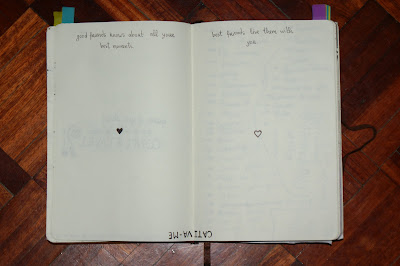 good friends knows about all youre
best moments.
best friends live them with
you.
CATIVA-ME